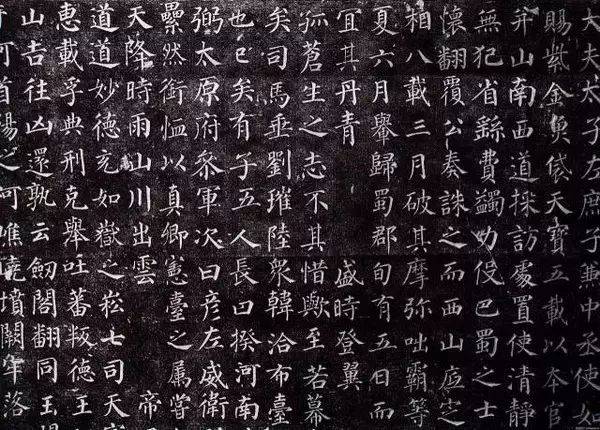 大夫太子左庶子兼中丞使如
賜紫金魚袋天寶五載以本官
并山南西道採訪處置使清靜
無犯省繇費蠲役巴蜀之士
懷翻覆公奏誅之而西山底定
相八載三月破其摩弥咄霸等
夏六月轝歸蜀郡旬有五日而
宜其丹青 盛時登翼
孤蒼生之志不其惜歟至若幕
矣司馬垂劉璀陸衆韓洽布臺
也已矣有子五人長曰揆河南
弼太原府叅軍次曰彦左威衛
纍然銜恤以真卿憲臺之属嘗
天降時雨山川出雲 帝
道道妙德充如嶽之崧七司天
惠載孚典刑克舉吐蕃叛德王
山吉往凶還孰云劒閣翻同玉
首陽之阿嶕嶢墳闕牢落